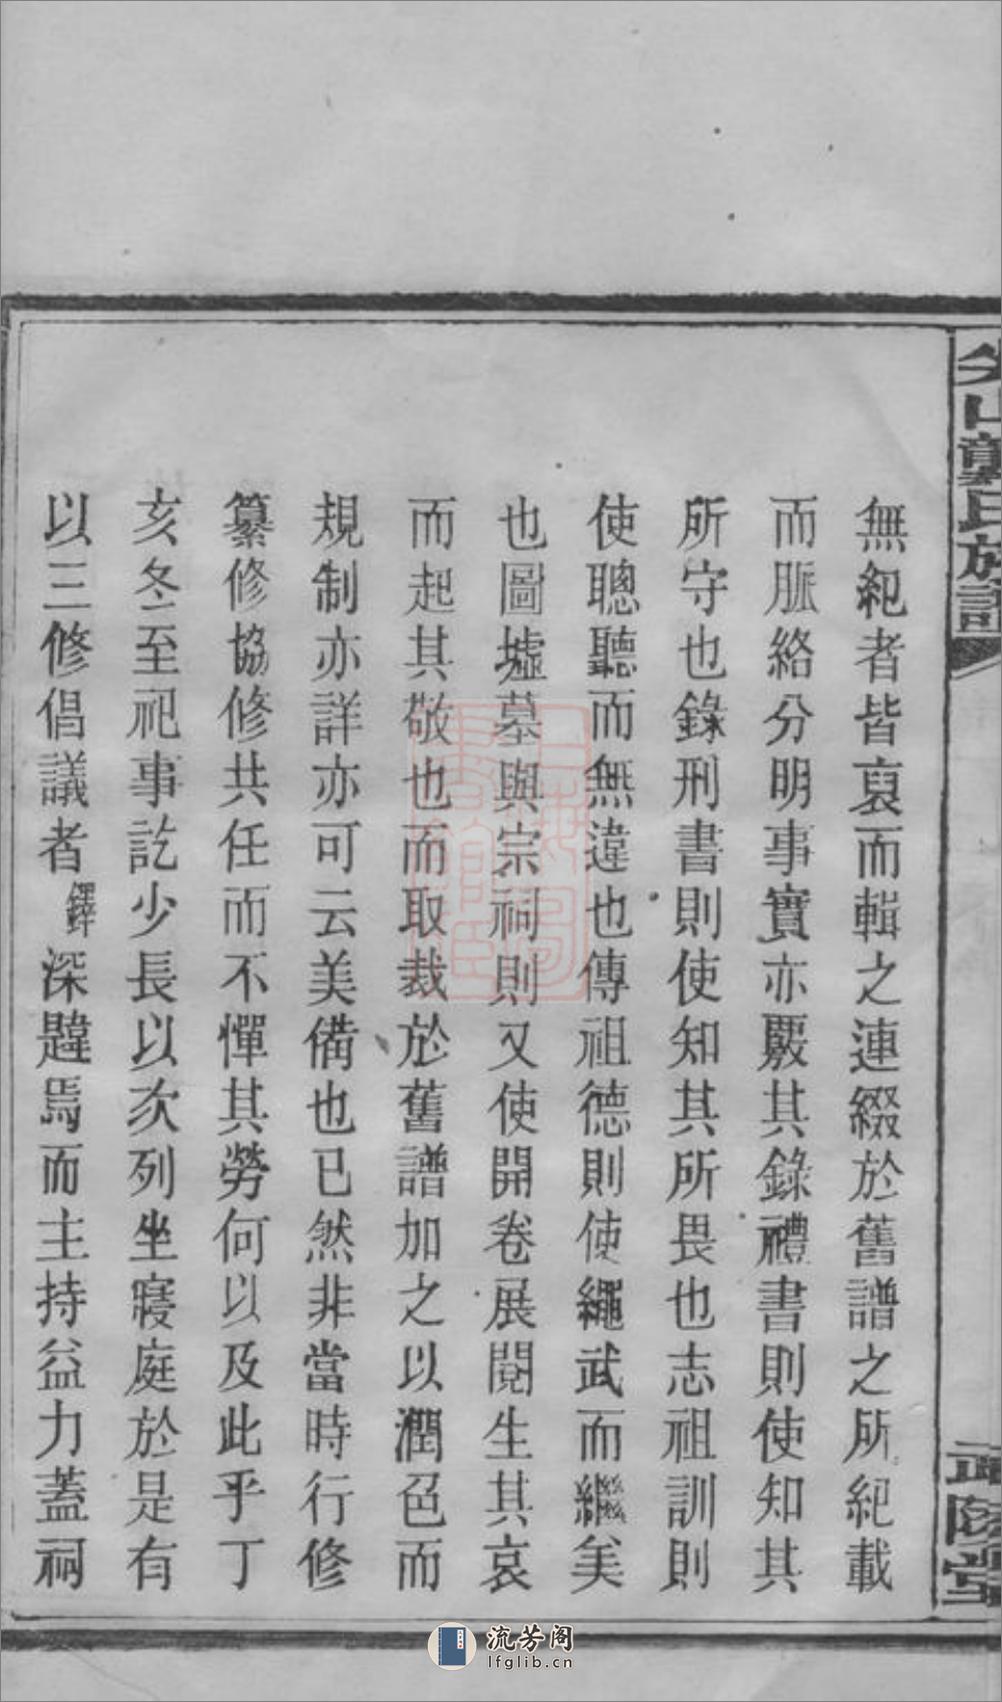 無紀者皆裒而輯之連綴於舊譜之所紀載
而脈絡分明事實亦覈其錄禮書則使知其
所守也錄刑書則使知其所畏也志祖訓則
使聰聽而無違也傳祖德則使繩武而繼矣
也圖墟墓與宗祠則又使開卷展閱生其哀
而起其敬也而取裁於舊譜加之以潤色而
規制亦詳亦可云美備也已然非當時行修
纂修協修共任而不憚其勞何以及此乎丁
亥冬至祀事訖少長以次列坐寢庭於是有
以三修倡議者鐸深韙焉而主持益力蓋祠
龔氏族譜
流芳阁
lfglib.cn